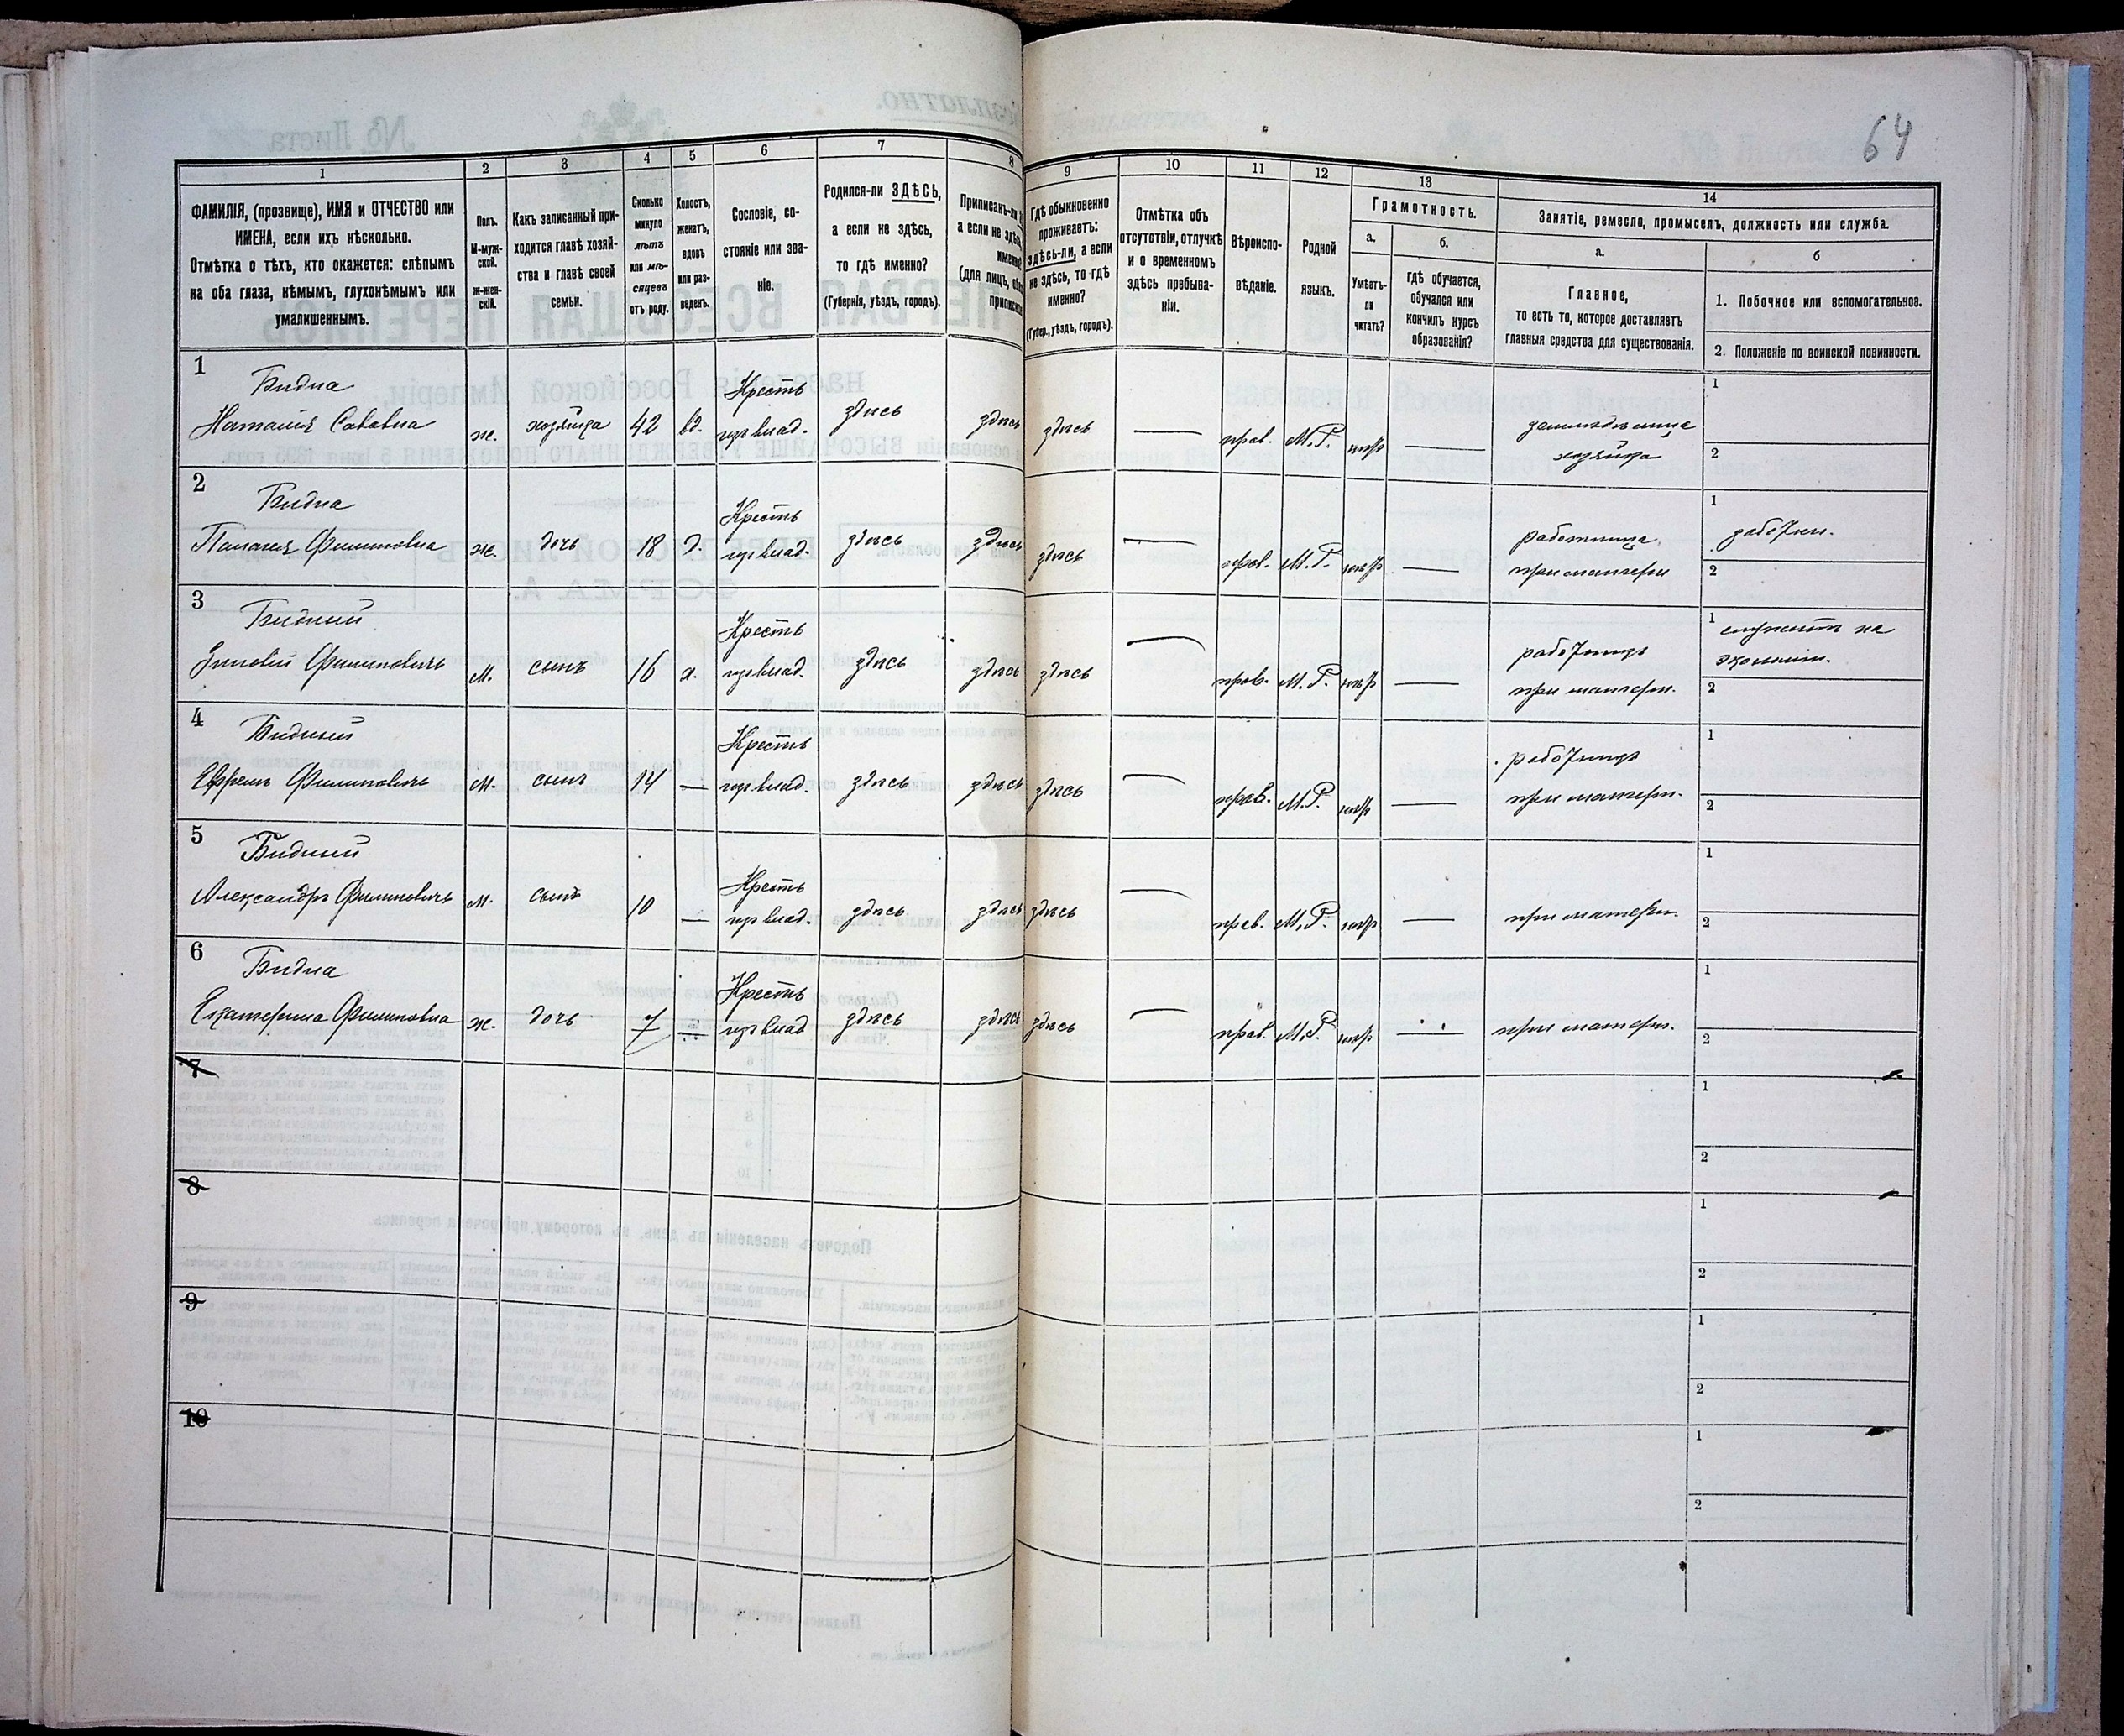 64
1
2
3
4
5
6
7
8
9
10
11
12
13
14
ФАМИЛІЯ, (прозвище), ИМЯ и ОТЧЕСТВО или
ИМЕНА, если ихъ нѣсколько.
Отмѣтка о тѣхъ, кто окажется: слѣпымъ
на оба глаза, нѣмымъ, глухонѣмымъ или
умалишеннымъ.
Полъ.
М-муж-
ской.
Ж-жен-
скій.
Какъ записанный при-
ходится главѣ хозяй-
ства и главѣ своей
семьи.
Сколько
минуло
лѣтъ
или мѣ-
сяцевъ
отъ роду.
Холостъ,
женатъ,
вдовъ
или раз-
веденъ.
Сословіе, со-
стояніе или зва-
ніе.
Родился-ли ЗДѢСЬ,
а если не здѣсь,
то гдѣ именно?
(Губернія, уѣздъ, городъ).
Приписанъ-ли
а если не здѣсь
именно
(для лицъ,
Гдѣ обыкновенно
проживаетъ:
здѣсь-ли, а если
не здѣсь, то гдѣ
именно?
(Губер., уѣздъ, городъ).
Отмѣтка объ
отсутствіи, отлучкѣ
и о временномъ
здѣсь пребыва-
ніи.
Вѣроиспо-
вѣданіе.
Родной
языкъ.
Грамотность.
а.
Умѣетъ-
ли
читать?
б.
Гдѣ обучается,
обучался или
кончилъ курсъ
образованія?
Занятіе, ремесло, промыселъ, должность или служба.
а.
Главное,
то есть то, которое доставляетъ
главныя средства для существованія.
б
1. Побочное или вспомогательное.
2. Положеніе по воинской повинности.
1
Бидна
Наталія Савовна
ж.
хозяйка
42
вд.
Кресть
здѣсь
здѣсь
здѣсь
прав.
М.Р.
хозяйка
1
2
2
Бидна
Палагея Филиповна
ж.
дочь
18
д.
Кресть
здѣсь
здѣсь
здѣсь
прав.
М.Р.
работница
при матери
1
2
3
Бидный
Зиновій Филиповичъ
м.
сынъ
16
х.
Кресть
здѣсь
здѣсь
здѣсь
прав.
М.Р.
при матери.
1
служитъ на
2
4
Бидный
Ефремъ Филиповичъ
м.
сынъ
14
—
Кресть
здѣсь
здѣсь
здѣсь
прав.
М.Р.
при матери.
1
2
5
Бидный
Александръ Филиповичъ
м.
сынъ
10
—
Кресть
здѣсь
здѣсь
здѣсь
прав.
М.Р.
при матери.
1
2
6
Бидна
Екатерина Филиповна
ж.
дочь
7
Кресть
здѣсь
здѣсь
здѣсь
прав.
М.Р.
при матери.
1
2
7
1
2
8
1
2
9
1
2
10
1
2